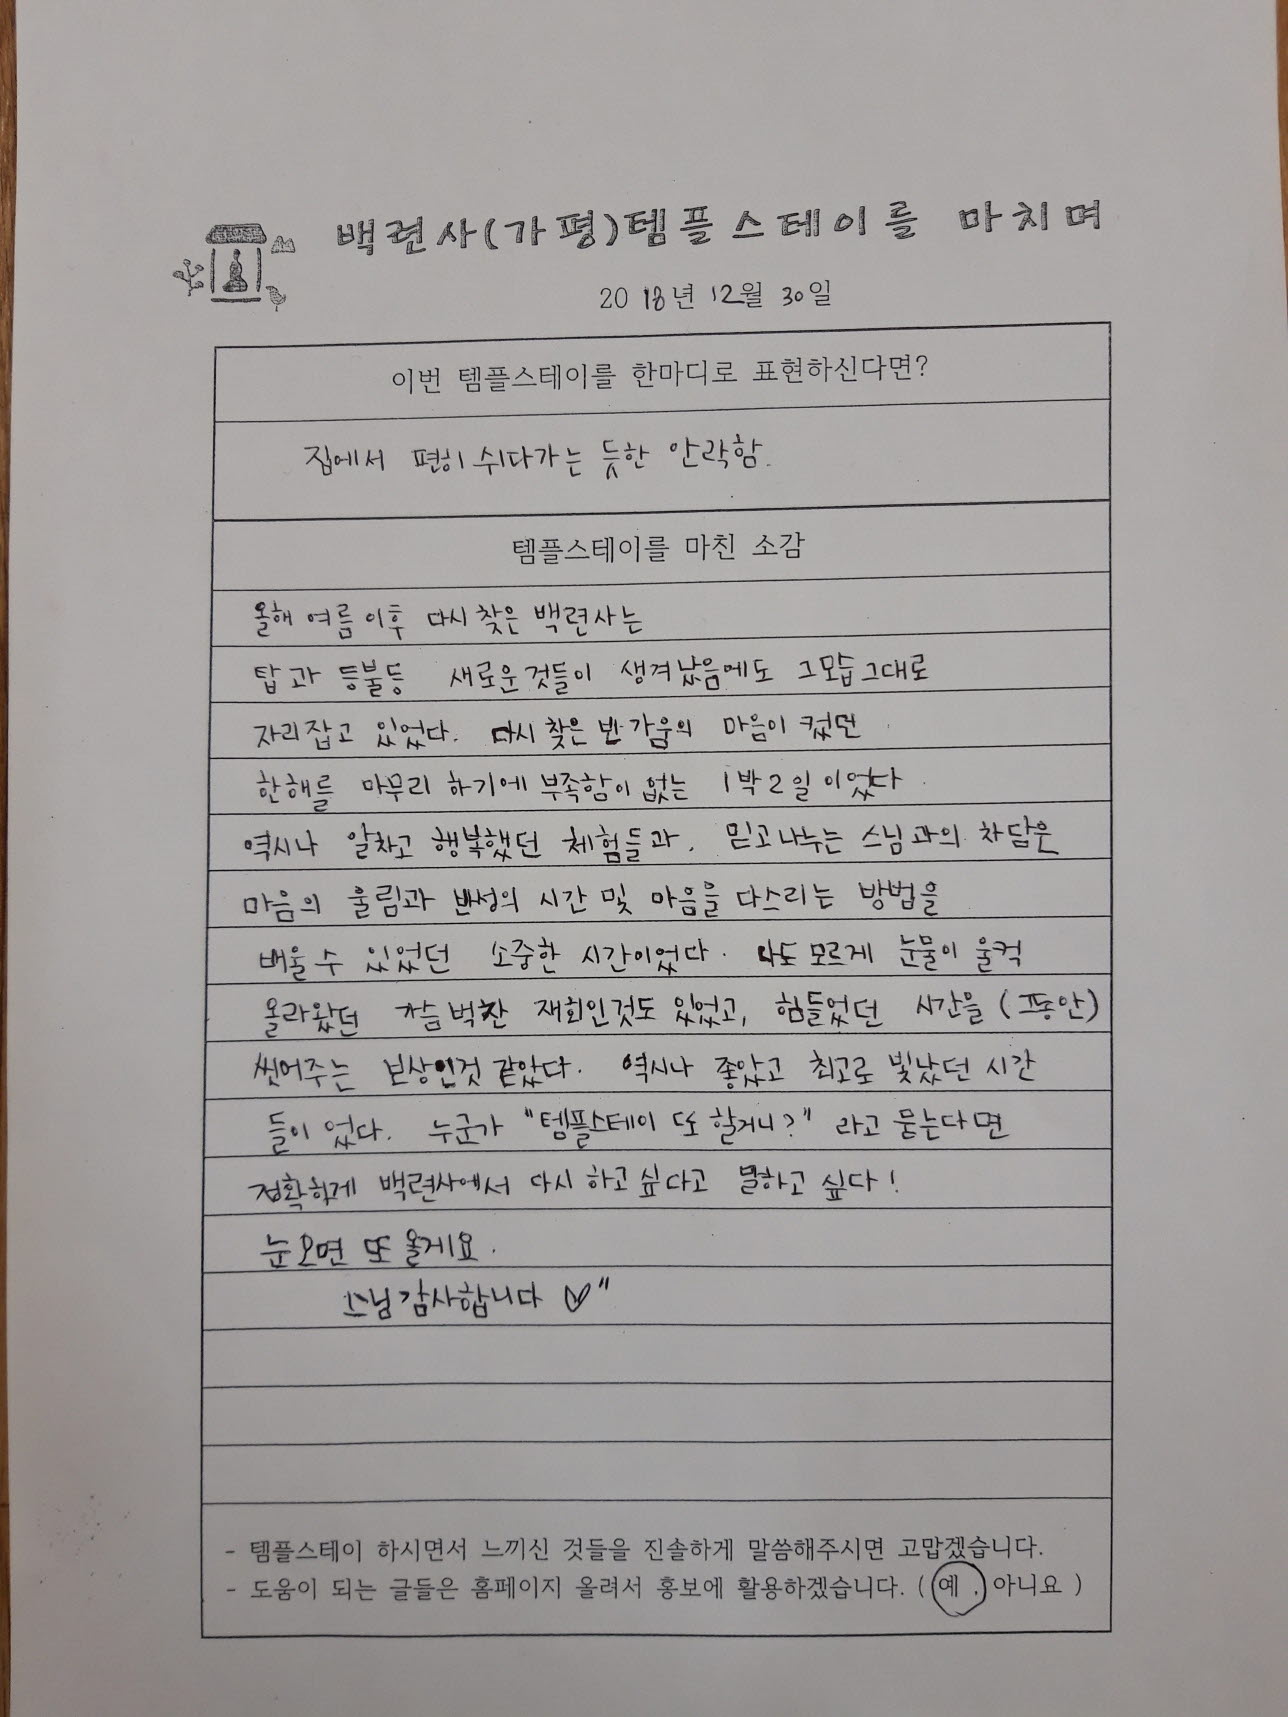 백련사(가평)템플스테이를 마치며
2018년 12월 30일
이번 템플스테이를 한마디로 표현하신다면?
집에서 편히 쉬다가는 듯한 안락함.
템플스테이를 마친 소감
올해 여름이후 다시 찾은 백련사는
탑과 등불등 새로운것들이 생겨났음에도 그모습그대로
자리잡고 있었다. 다시 찾은 반가움의 마음이 컸던
한해를 마무리 하기에 부족함이 없는 1박2일 이었다.
역시나 알차고 행복했던 체험들과, 믿고나누는 스님과의 차담은
마음의 울림과 반성의 시간 및 마음을 다스리는 방법을
배울 수 있었던 소중한 시간이었다. 나도 모르게 눈물이 울컥
올라왔던 가슴벅찬 재회인것도 있었고, 힘들었던 시간을 (그동안)
씻어주는 보상인것 같았다. 역시나 좋았고 최고로 빛났던 시간
들이 었다. 누군가 "템플스테이 또 할거니?" 라고 묻는다면
정확하게 백련사에서 다시 하고 싶다고 말하고 싶다!
눈오면 또 올게요.
스님감사합니다 ♡"
- 템플스테이 하시면서 느끼신 것들을 진솔하게 말씀해주시면 고맙겠습니다.
- 도움이 되는 글들은 홈페이지 올려서 홍보에 활용하겠습니다. ( 예 , 아니요 )